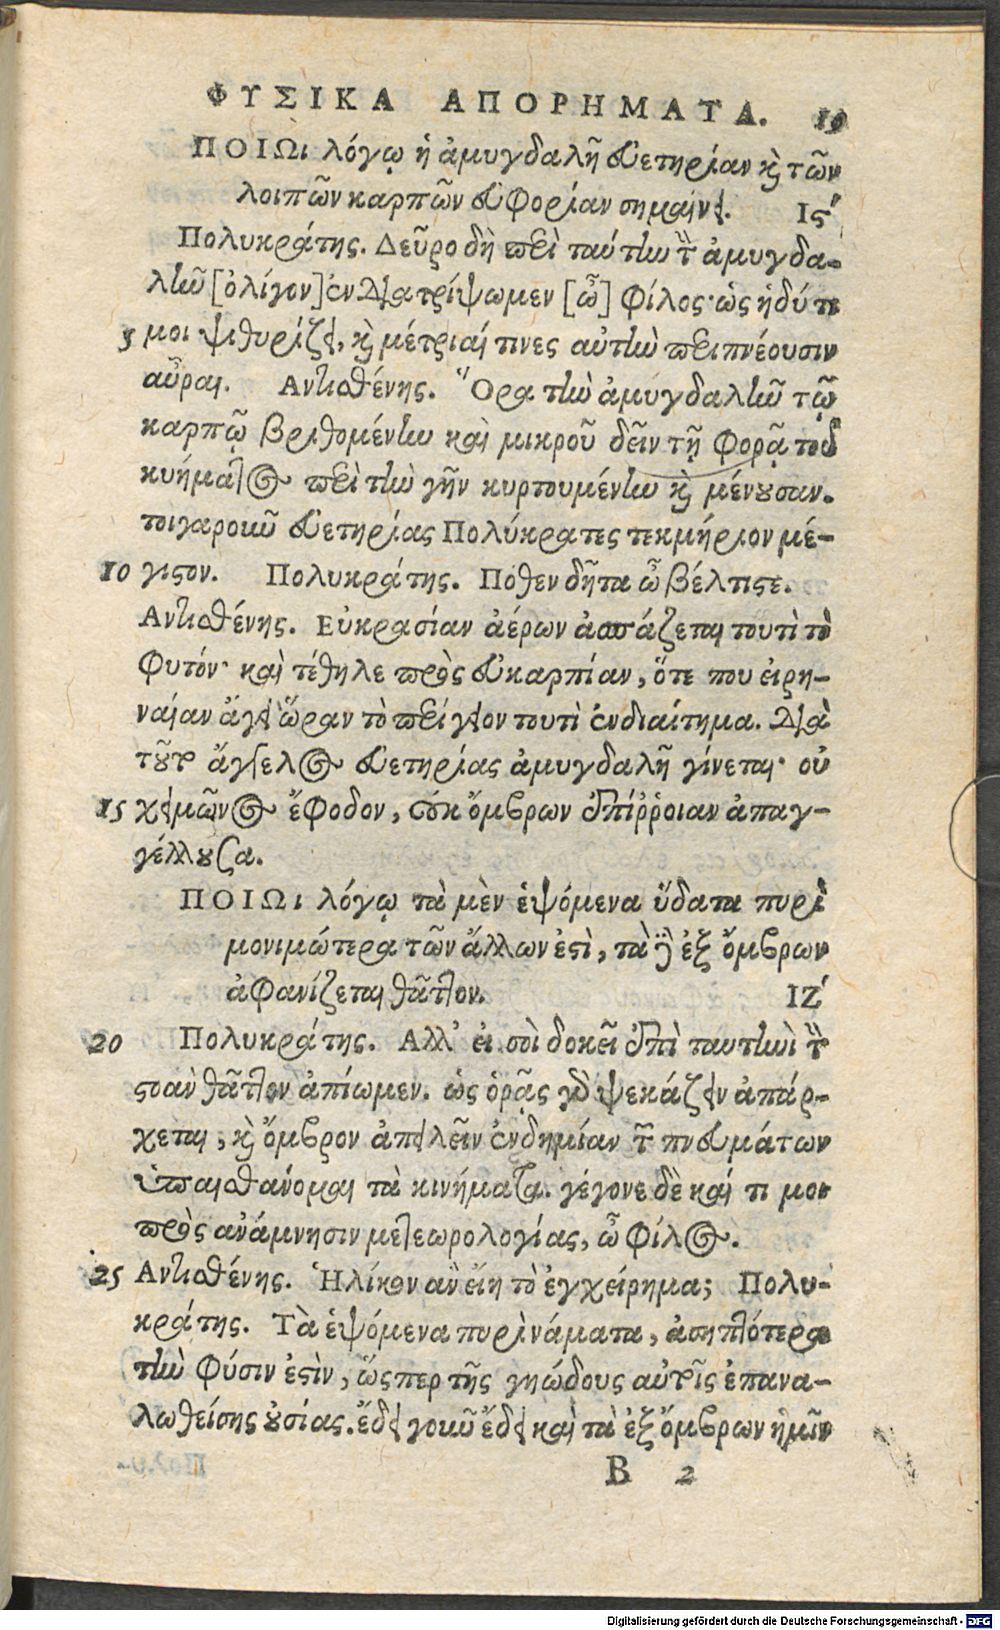 ΦΥΣΙΚΑ ΑΠΟΡΗΜΑΤΑ. 19
ΠΟΙΩι λόγῳ ἡ ἀμυγδαλῆ εὐετηρίαν καὶ τῶν
λοιπῶν καρπῶν εὐφορίαν σημαίνει. Ιϛʹ
Πολυκράτης. Δεῦρο δὴ περὶ ταύτην τὴν ἀμυγδα-
λῆν [ὀλίγον] ἐνδιατρίψωμεν [ὦ] φίλος· ὡς ἡδύ τι
5 μοι ψιθυρίζει, καὶ μέτριαί τινες αὐτὴν περιπνέουσιν
αὖραι. Αντισθένης. Ὅρα τὴν ἀμυγδαλῆν τῷ
καρπῷ βριθομένην καὶ μικροῦ δεῖν τῇ φορᾷ τοῦ
κυήματος περὶ τὴν γῆν κυρτουμένην καὶ μένουσαν.
τοιγαροῦν εὐετηρίας Πολύκρατες τεκμήριον μέ-
10 γιστον. Πολυκράτης. Πόθεν δῆτα ὦ βέλτιστε.
Αντισθένης. Εὐκρασίαν ἀέρων ἀσπάζεται τουτὶ τὸ
φυτόν· καὶ τέθηλε πρὸς εὐκαρπίαν, ὅτε που εἰρη-
ναίαν ἄγει ὥραν τὸ περίγειον τουτὶ ἐνδιαίτημα. Διὰ
τοῦτ' ἄγγελος εὐετηρίας ἀμυγδαλῆ γίνεται· οὐ
15 χειμῶνος ἔφοδον, οὐκ ὄμβρων ἐπίῤῥοιαν ἀπαγ-
γέλλουσα.
ΠΟΙΩι λόγῳ τὰ μὲν ἑψόμενα ὕδατα πυρὶ
μονιμώτερα τῶν ἄλλων ἐστὶ, τὰ δὲ ἐξ ὄμβρων
ἀφανίζεται θᾶττον. ΙΖʹ
20 Πολυκράτης. Αλλ' εἰ σοὶ δοκεῖ ἐπὶ ταυτηνὶ τὴν
στοὰν θᾶττον ἀπίωμεν. ὡς ὁρᾷς γὰρ ψεκάζειν ἀπάρ-
χεται, καὶ ὄμβρον ἀπειλεῖν ἐνδημίαν τῶν πνευμάτων
ὑπαισθάνομαι τὰ κινήματα. γέγονε δὲ καί τι μοι
πρὸς ἀνάμνησιν μετεωρολογίας, ὦ φίλος.
25 Αντισθένης. Ἡλίκον ἂν εἴη τὸ ἐγχείρημα; Πολυ-
κράτης. Τὰ ἑψόμενα πυρὶ νάματα, ἀσηπτότερα
τὴν φύσιν ἐστὶν, ὥσπερ τῆς γηώδους αὐτοῖς ἐπανα-
λωθείσης οὐσίας. ἔδει γοῦν ἔδει καὶ τὰ ἐξ ὄμβρων ἡμῖν
B 2
Digitalisierung gefördert durch die Deutsche Forschungsgemeinschaft - DFG